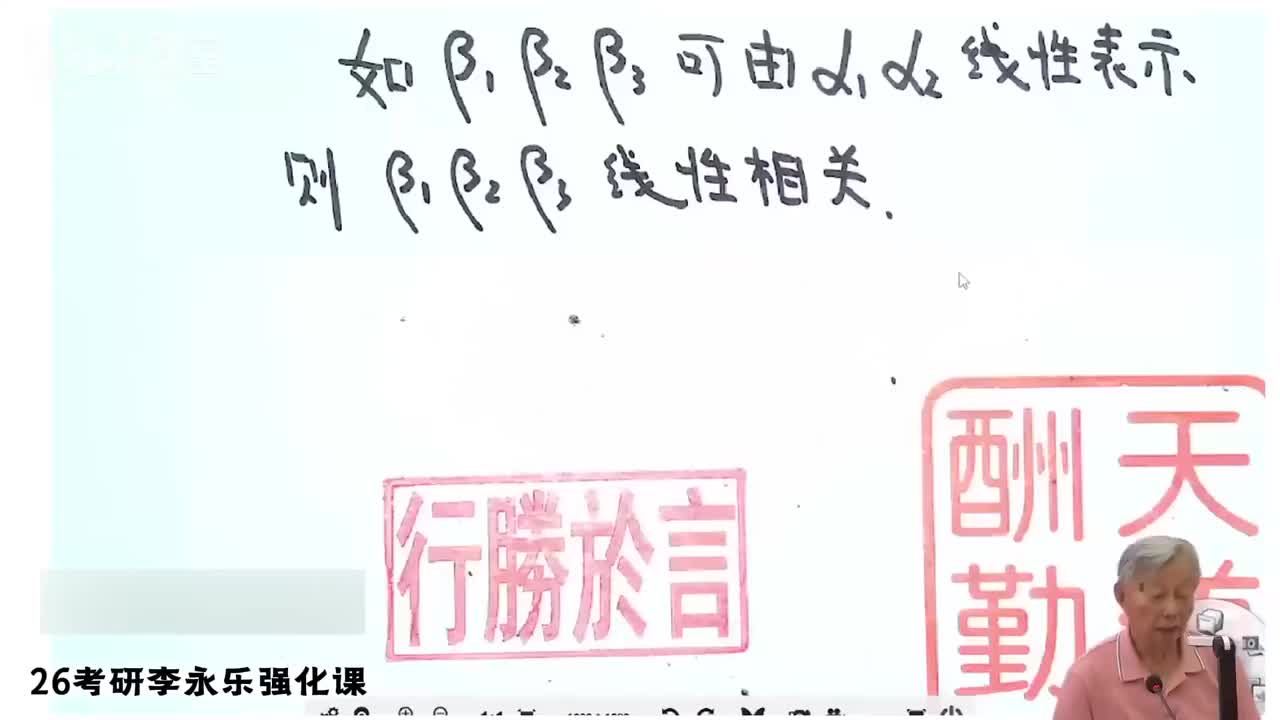 如 β₁ β₂ β₃ 可由 α₁ α₂ 线性表示
则 β₁ β₂ β₃ 线性相关.
言於勝行
天
酬勤
26考研李永乐强化课